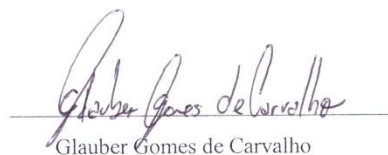 Glauber Gomes de Carvalho
Glauber Gomes de Carvalho